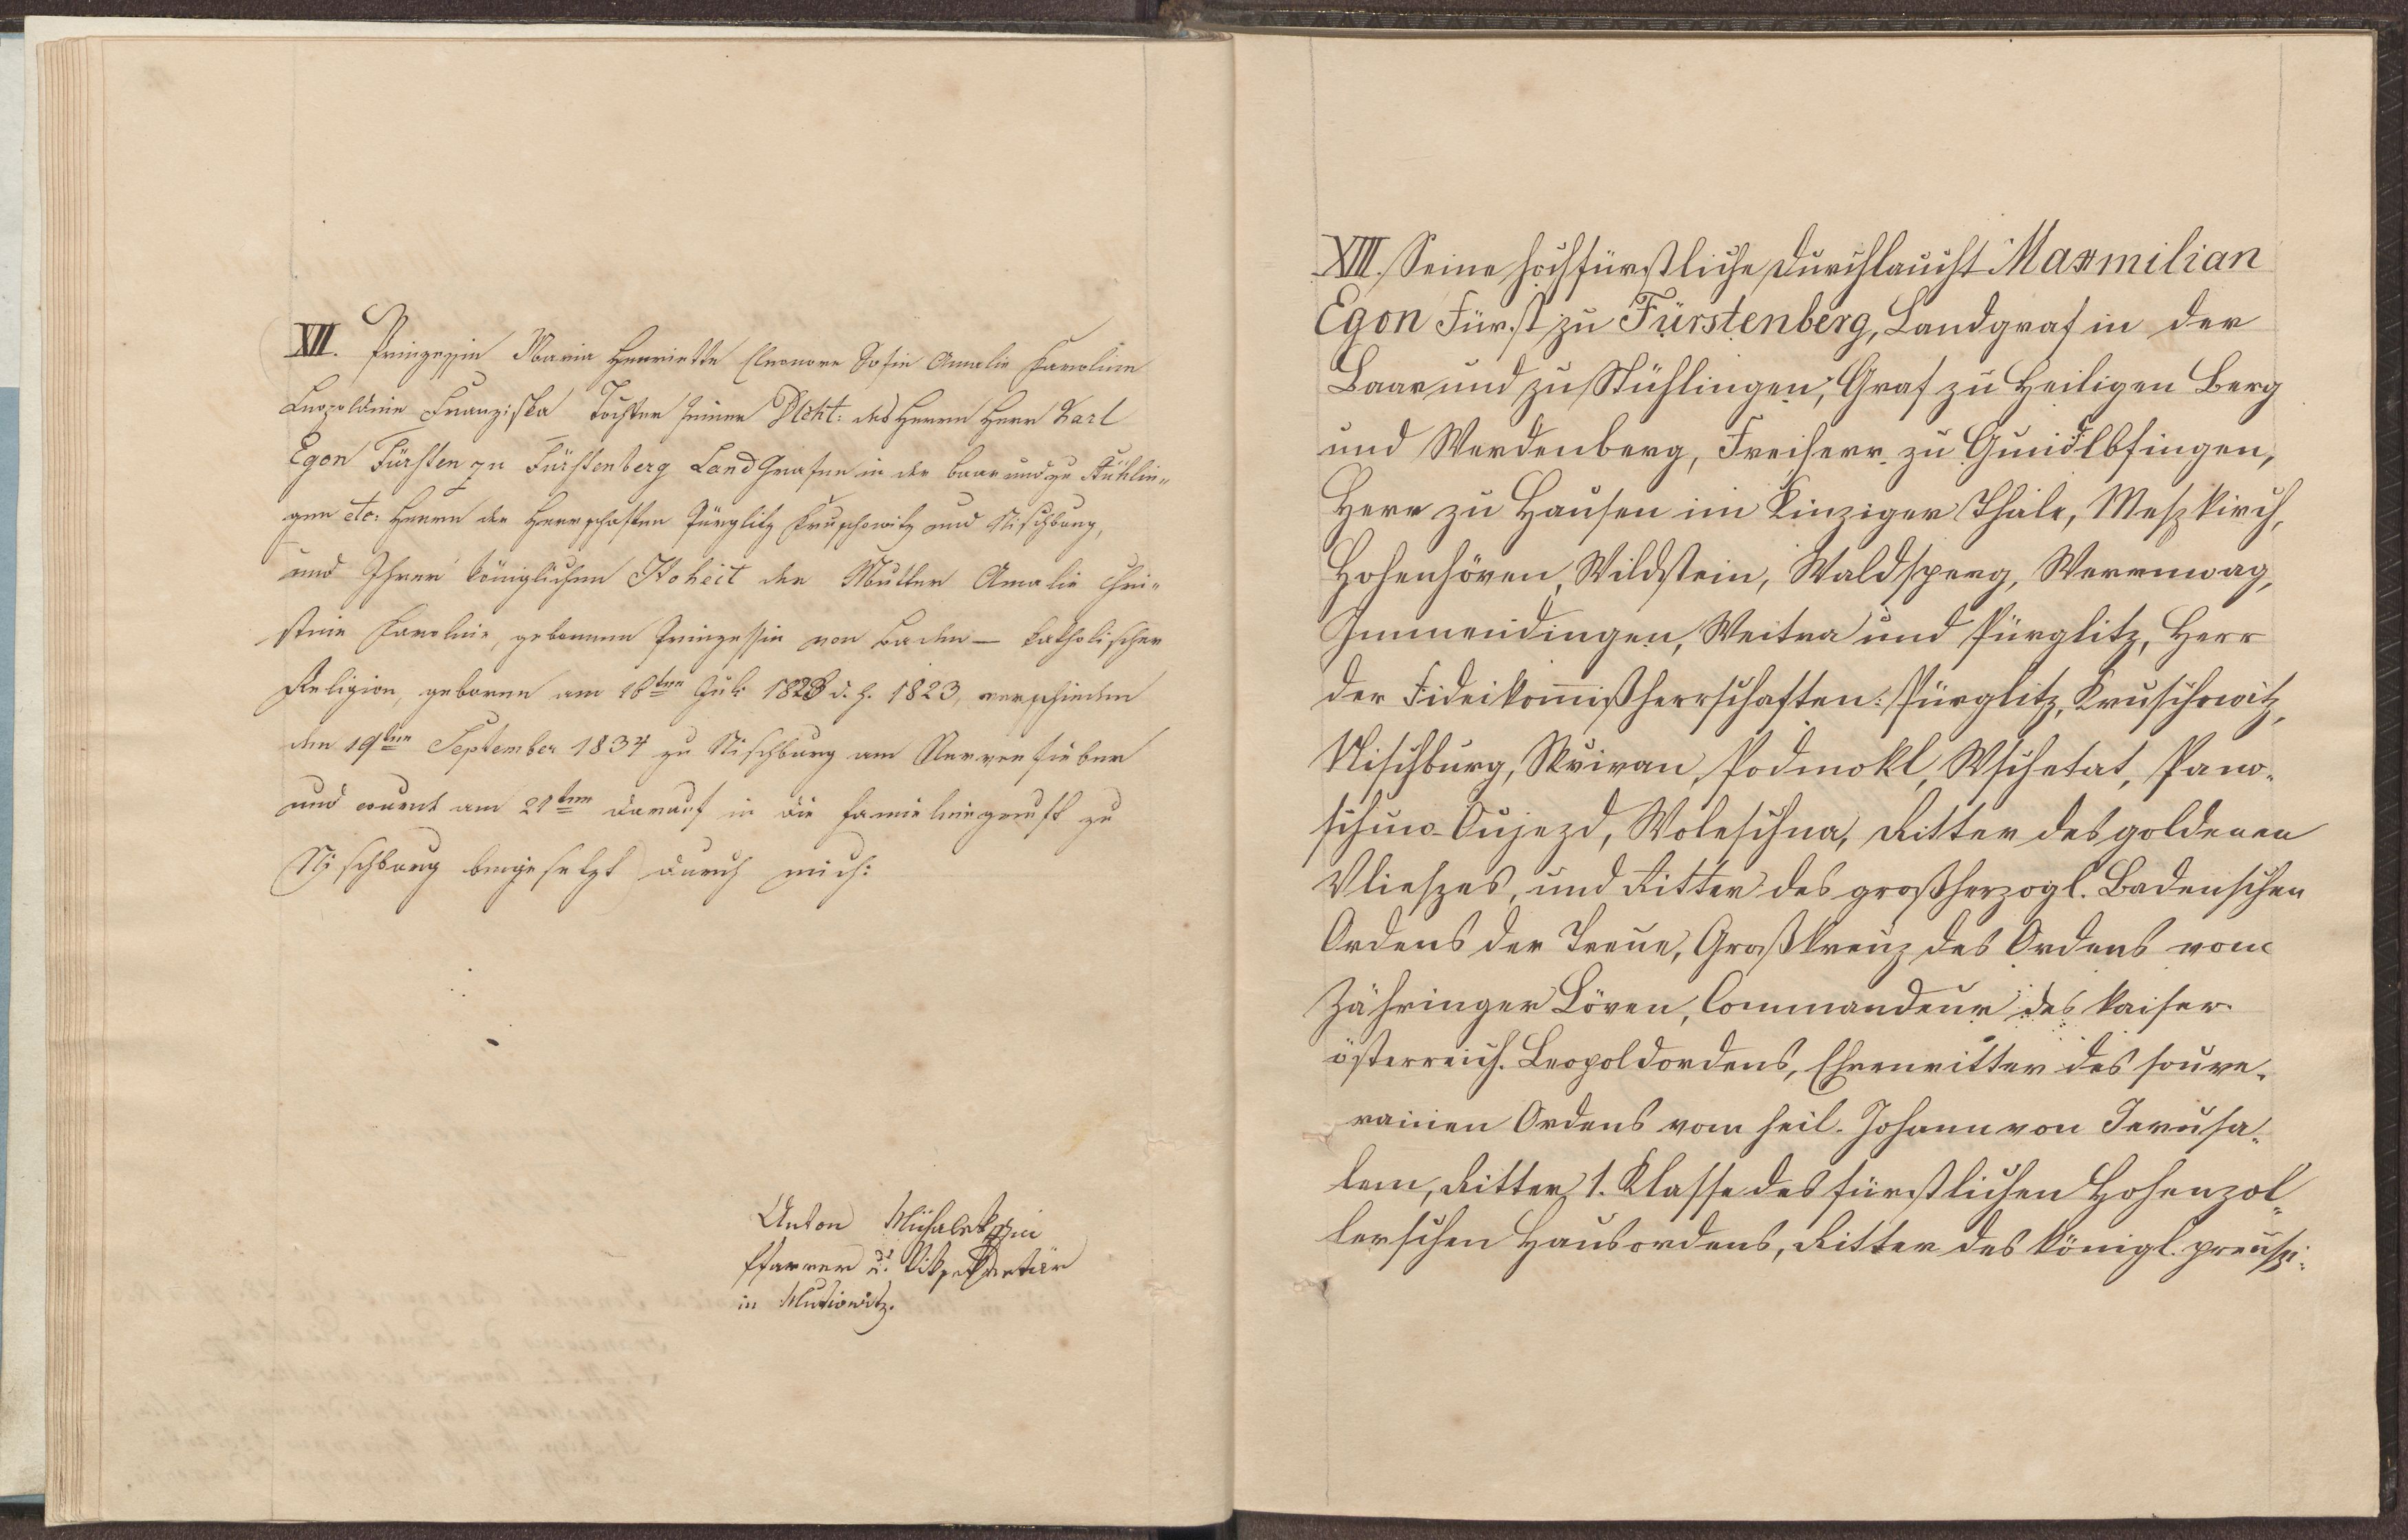 XII. Prinzessin Maria Henriette Eleonore Sofie Amalie Karoline
Leopoldine Franziska Tochter seiner Dlcht: des Herrn Herr Karl
Egon Fürsten zu Fürstenberg LandGrafen in der Baar und zu Stühlin=
gen etc: Herrn der Herrschaften Pürglitz Kruschowitz und Nischburg,
und Ihrer königlichen Hoheit der Mutter Amalie Chri=
stine Karoline, gebornen Prinzessin von Baden – katholischer
Religion, geboren am 16ten Juli 1823 d. h. 1823, verschieden
den 19ten September 1834 zu Nischburg am Nervenfieber
und wurde am 21ten darauf in die Familiengruft zu
Nischburg beigesetzt durch mich:
Anton
Pfarrer u.
in
XIII. Seine hochfürstliche Durchlaucht Maxmilian
Egon Fürst zu Fürstenberg, Landgraf in der
Baar und zu Stühlingen, Graf zu Heiligen Berg
und Werdenberg, Freiherr zu Gundelfingen,
Herr zu Hausen im Kinziger Thale, Meszkirch,
Hohenhöven, Wildstein, Waldsperg, Werenwag,
Immendingen, Weitra und Pürglitz, Herr
der Fideikom̅ißherrschaften: Pürglitz, Kruschowitz,
Nischburg, Skrivan, Podmokl, Wschetat, Pano=
schno-Oujezd, Woleschna, Ritter des goldenen
Vlieszes, und Ritter des großherzogl. Badenschen
Ordens der Treue, Großkreuz des Ordens vom
Zähringer Löven, Commandeur des kaiser.
österreich. Leopoldordens, Ehrenritter des souve=
rainen Ordens vom heil. Johann von Jerusa=
lem, Ritter 1. Klasse des fürstlichen Hohenzol=
lerschen Hausordens, Ritter des königl. preuszi=